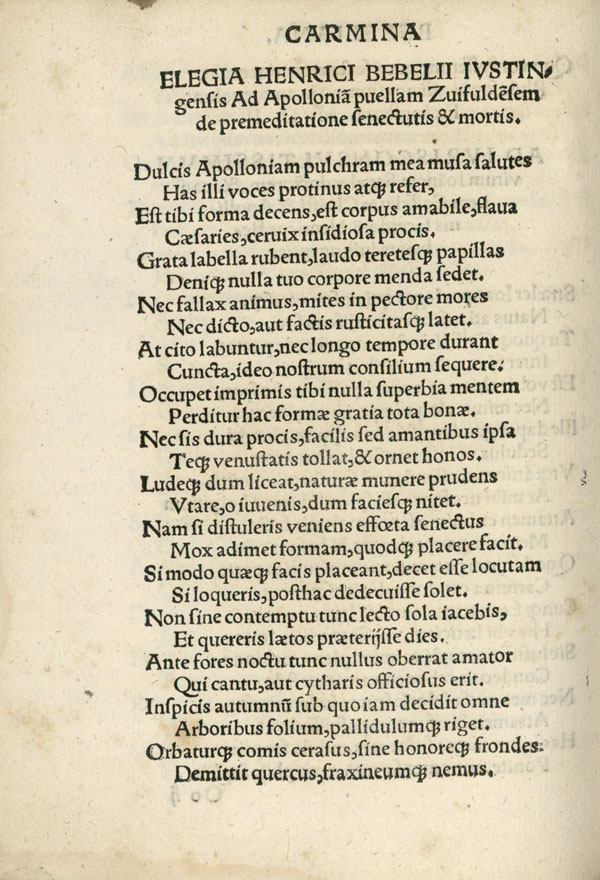 CARMINA
ELEGIA HENRICI BEBELII IVSTIN⸗
gensis Ad Apolloniã puellam Zuifuldẽsem
de premeditatione senectutis & mortis.
Dulcis Apolloniam pulchram mea musa salutes
Has illi voces protinus atqꝫ refer,
Est tibi forma decens, est corpus amabile, flaua
Cæsaries, ceruix insidiosa procis.
Grata labella rubent, laudo teretesqꝫ papillas
Deniqꝫ nulla tuo corpore menda sedet.
Nec fallax animus, mites in pectore mores
Nec dicto, aut factis rusticitasqꝫ latet.
At cito labuntur, nec longo tempore durant
Cuncta, ideo nostrum consilium sequere:
Occupet imprimis tibi nulla superbia mentem
Perditur hac formæ gratia tota bonæ.
Nec sis dura procis, facilis sed amantibus ipsa
Teqꝫ venustatis tollat, & ornet honos.
Ludeqꝫ dum liceat, naturæ munere prudens
Vtare, o iuuenis, dum faciesqꝫ nitet.
Nam si distuleris veniens effœta senectus
Mox adimet formam, quodqꝫ placere facit.
Si modo quæqꝫ facis placeant, decet esse locutam
Si loqueris, posthac dedecuisse solet.
Non sine contemptu tunc lecto sola iacebis,
Et quereris lætos præterijsse dies.
Ante fores noctu tunc nullus oberrat amator
Qui cantu, aut cytharis officiosus erit.
Inspicis autumnũ sub quo iam decidit omne
Arboribus folium, pallidulumqꝫ riget.
Orbaturqꝫ comis cerasus, sine honoreqꝫ frondes:
Demittit quercus, fraxineumqꝫ nemus.